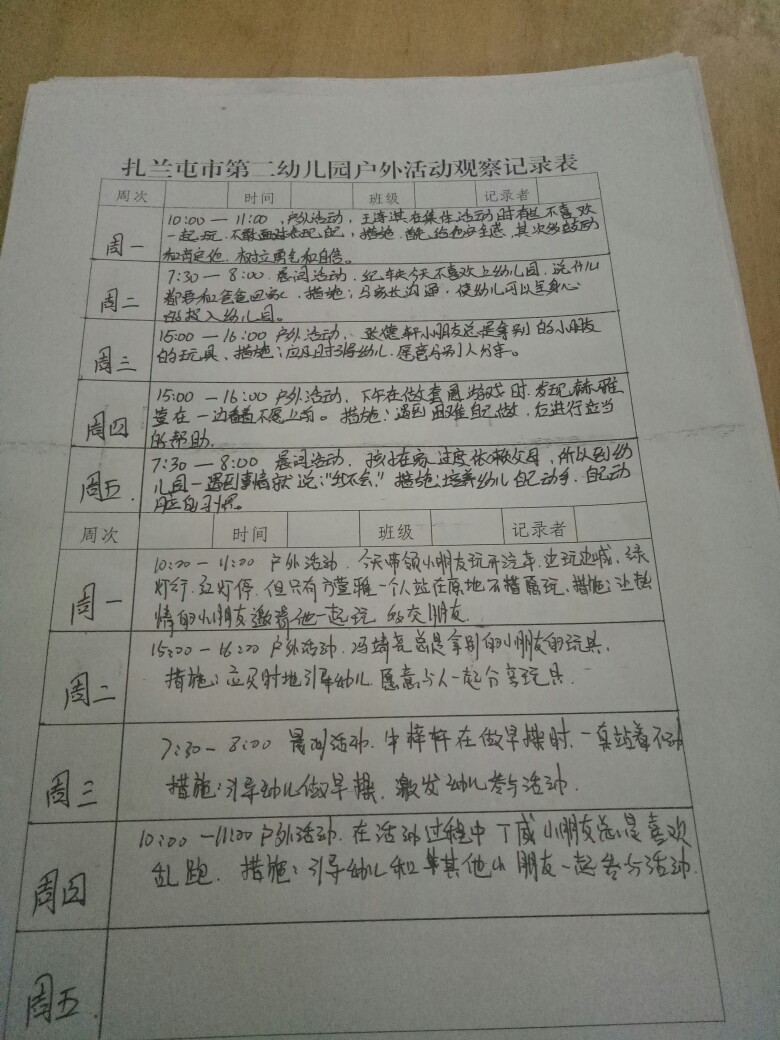 扎兰屯市第二幼儿园户外活动观察记录表
周次 时间 班级 记录者
周一
10:00 — 11:00 户外活动, 王 在集体活动时有些不喜欢
一起玩. 不敢面对 , 措施. 首先给他安全感, 其次 鼓励
和肯定他, 树立勇气和自信。
周二
7:30 — 8:00 晨间活动. 今天不喜欢上幼儿园, 说什么
都要和爸爸回家, 措施: 与家长沟通, 使幼儿可以全身心
的投入幼儿园。
周三
15:00 — 16:00 户外活动, 张 轩小朋友总是拿别的小朋友
的玩具, 措施: 应及时引导幼儿, 愿意与别人分享。
周四
15:00 — 16:00 户外活动, 下午在做套圈游戏时, 发现 雅
萱在一边看着不愿上前。 措施: 遇到困难自己做, 后进行适当
的帮助.
周五.
7:30 — 8:00 晨间活动. 孩子在家过度依赖父母, 所以到幼
儿园一遇到事情就说:"我不会." 措施: 培养幼儿自己动手, 自己动
脑的习惯。
周次 时间 班级 记录者
周一
10:00 — 11:00 户外活动. 今天带领小朋友玩开汽车. 边玩边喊, 绿
灯行. 红灯停. 但只有方萱雅一个人站在原地不 玩, 措施: 让热
情的小朋友邀请他一起玩 交朋友.
周二
15:00 — 16:00 户外活动. 冯靖尧总是拿别的小朋友的玩具.
措施: 应及时地引导幼儿 愿意与人一起分享玩具.
周三
7:30 — 8:00 晨间活动. 牛梓轩在做早操时. 一直站着不动
措施: 引导幼儿做早操, 激发幼儿参与活动.
周四
10:00 — 11:00 户外活动. 在活动过程中丁成小朋友总是喜欢
乱跑. 措施: 引导幼儿和 其他小朋友一起参与活动.
周五.